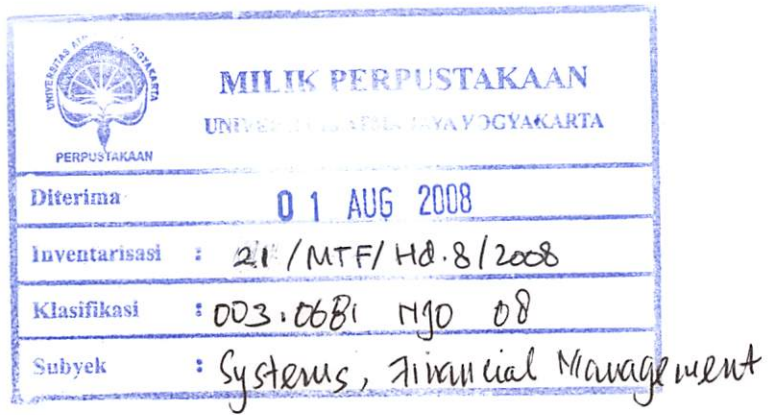 PERPUSTAKAAN
MILIK PERPUSTAKAAN
UNIVERSITAS ATMA JAYA YOGYAKARTA
Diterima 01 AUG 2008
Inventarisasi : 21/MTF/Hd.8/2008
Klasifikasi : 003.0681 Njo 08
Subyek : Systems, Financial Management